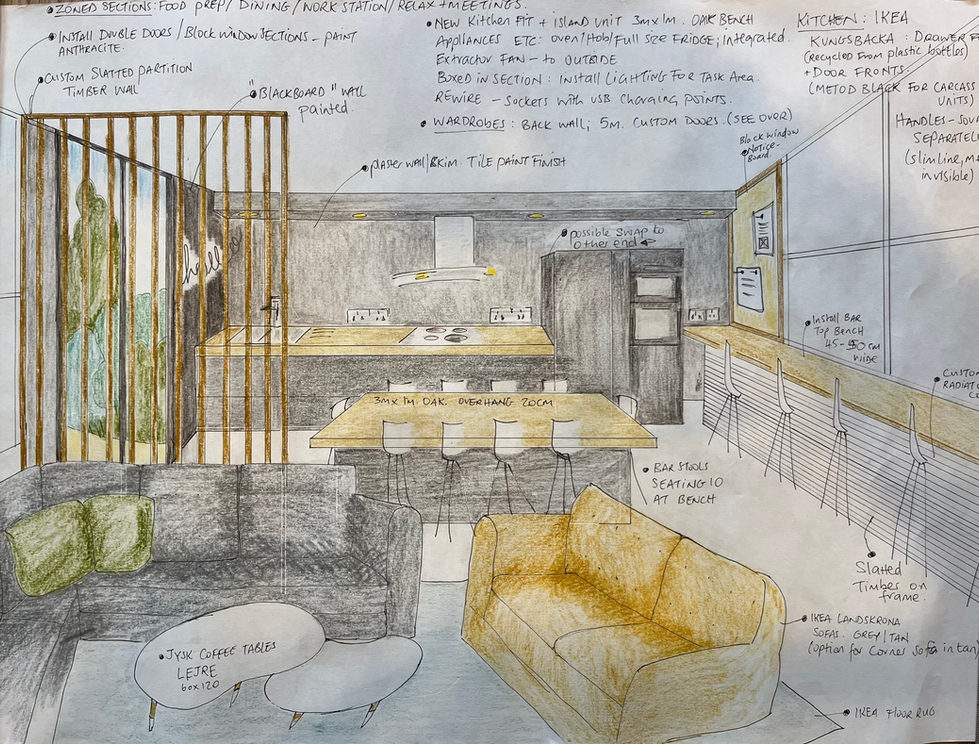 • ZONED SECTIONS: FOOD PREP / DINING / WORK STATION / RELAX + MEETINGS.
• INSTALL DOUBLE DOORS / BLOCK WINDOW SECTIONS - PAINT
ANTHRACITE.
• CUSTOM SLATTED PARTITION
TIMBER WALL
• "BLACKBOARD" WALL
painted.
• plaster WALL/SKIM. TILE PAINT FINISH
• NEW KITCHEN FIT + ISLAND UNIT 3m x 1m. OAK BENCH
APPLIANCES ETC: OVEN/HOB/FULL SIZE FRIDGE; INTEGRATED.
EXTRACTOR FAN - to OUTSIDE
BOXED IN SECTION: INSTALL LIGHTING FOR TASK AREA.
REWIRE - SOCKETS WITH USB CHARGING POINTS.
• WARDROBES: BACK WALL; 5m. CUSTOM DOORS. (SEE OVER)
KITCHEN: IKEA
KUNGSBACKA: DRAWER F
(RECYCLED FROM plastic bottles)
+ DOOR FRONTS.
(METOD BLACK FOR CARCASS
UNITS)
HANDLES - SOU
SEPARATEL
(slimline, ma
invisible)
• Block window
Notice-
Board.
• possible SWAP to
other end
hello
• Install BAR
TOP BENCH
45-50cm
WIDE
• CUSTO
RADIATO
C
3m x 1m. OAK. OVERHANG 20cm
• BAR STOOLS
SEATING 10
AT BENCH
• Slatted
Timbers on
frame.
• IKEA LANDSKRONA
SOFAS. GREY/TAN
(option for Corner Sofa in tan)
• JYSK COFFEE TABLES
LEJRE
60 x 120
• IKEA FLOOR RUG